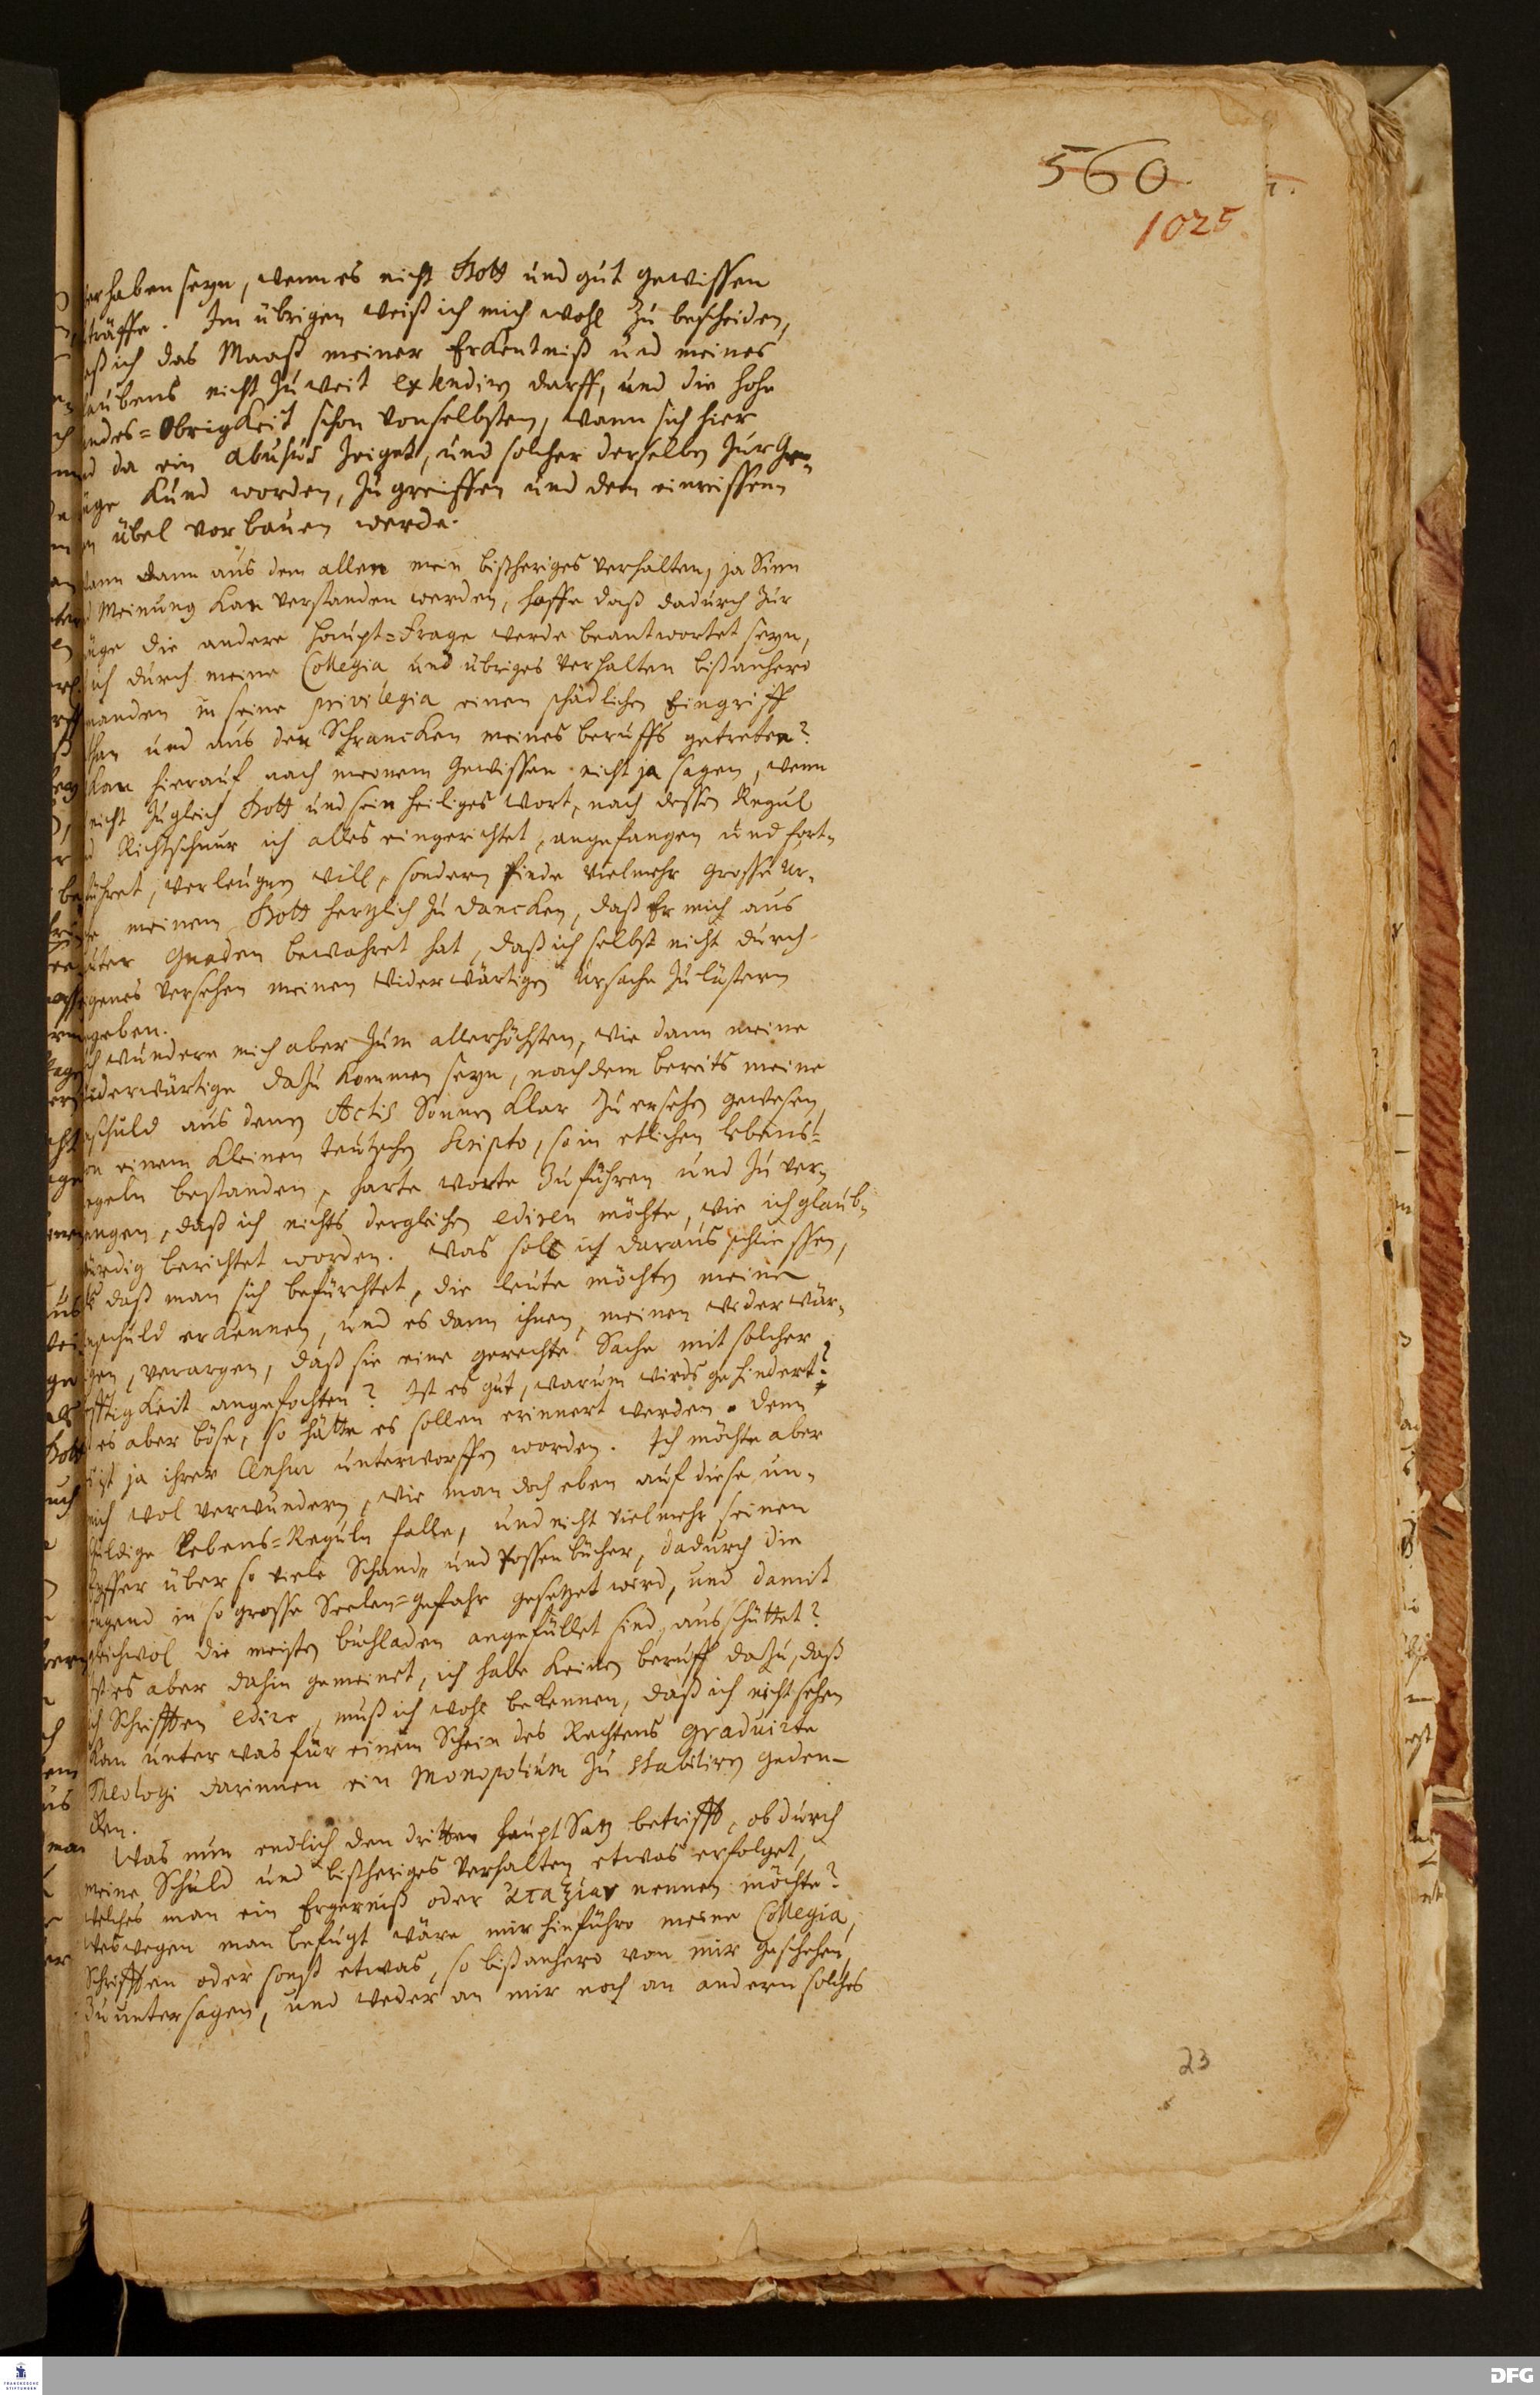 560.
1025
haben seyn, wenn es nicht Gott und gut gewissen
träffe. Im übrigen weiß ich mich wohl zu bescheiden,
ß ich das Maaß meiner Erkentniß und meines
laubens nicht zu weit extendiren darff, und die hohe
andes=Obrigkeit schon von selbsten, wann sich hier
und da ein abusus zeiget, und solcher derselben zur Ge-
nüge kund worden, zu greiffen und dem einreissen
en übel vorbauen werde.
dann aus dem allen mein bißheriges verhalten, ja Sinn
d Meinung kan verstanden werden, hoffe daß dadurch zur
nüge die andere Haupt=Frage werde beantwortet seyn,
ich durch meine Collegia und übriges verhalten bißanhero
manden in seine privilegia einen schädlichen Eingriff
than und aus den Schrancken meines beruffs getreten?
kan hierauf nach meinem Gewissen nicht ja sagen, wenn
nicht zugleich Gott und sein heiliges wort, nach dessen Regul
d Richtschnur ich alles eingerichtet, angefangen und fort-
führet, verleugnen will, sondern finde vielmehr grosse Ur-
meinem Gott hertzlich zu dancken, daß Er mich aus
uter Gnaden bewahret hat, daß ich selbst nicht durch
igenes versehen meinen widerwärtigen Ursache zu lästern
geben.
ich wundere mich aber zum allerhöchsten, wie dann meine
widerwärtige dazu kommen seyn, nachdem bereits meine
schuld aus denen Actis Sonnen klar zu ersehen gewesen,
von einem kleinen teutschen Scripto, so in etlichen lebens-
egeln bestanden, harte worte zu führen und zu ver-
langen, daß ich nichts dergleichen ediren möchte, wie ich glaub-
ürdig berichtet worden. Was soll ich daraus schliessen,
ls daß man sich befürchtet, die leute möchten meine
nschuld erkennen, und es dann ihnen, meinen widerwär-
igen, verargen, daß sie eine gerechte Sache mit solcher
efftigkeit angefochten? Ist es gut, warum wirds gehindert?
es aber böse, so hätte es sollen erinnert werden. Denn
ist ja ihrer Censur unterworffen worden. Ich möchte aber
mich wol verwundern, wie man doch eben auf diese un-
huldige Lebens=Reguln falle, und nicht vielmehr seinen
Eyffer über so viele Schand= und Possen bücher, dadurch die
ugend in so grosse Seelen=gefahr gesetzet wird, und damit
gleichwol die meisten buchladen angefüllet sind, ausschüttet?
Ist es aber dahin gemeinet, ich habe keinen beruff dazu, daß
ich Schrifften edire, muß ich wohl bekennen, daß ich nicht sehen
kan unter was für einem Schein des Rechtens graduirte
Theologi darinnen ein Monopolium zu stabiliren geden-
cken.
Was nun endlich den dritten Haupt Satz betrifft, ob durch
meine Schuld und bißheriges Verhalten etwas erfolget,
welches man ein Ergerniß oder ἀταξίαν nennen möchte?
deswegen man befugt wäre mir hinführo meine Collegia,
Schrifften oder sonst etwas, so bißanhero von mir geschehen,
zu untersagen, und weder an mir noch an andern solches
23
FRANCKESCHE STIFTUNGEN
DFG